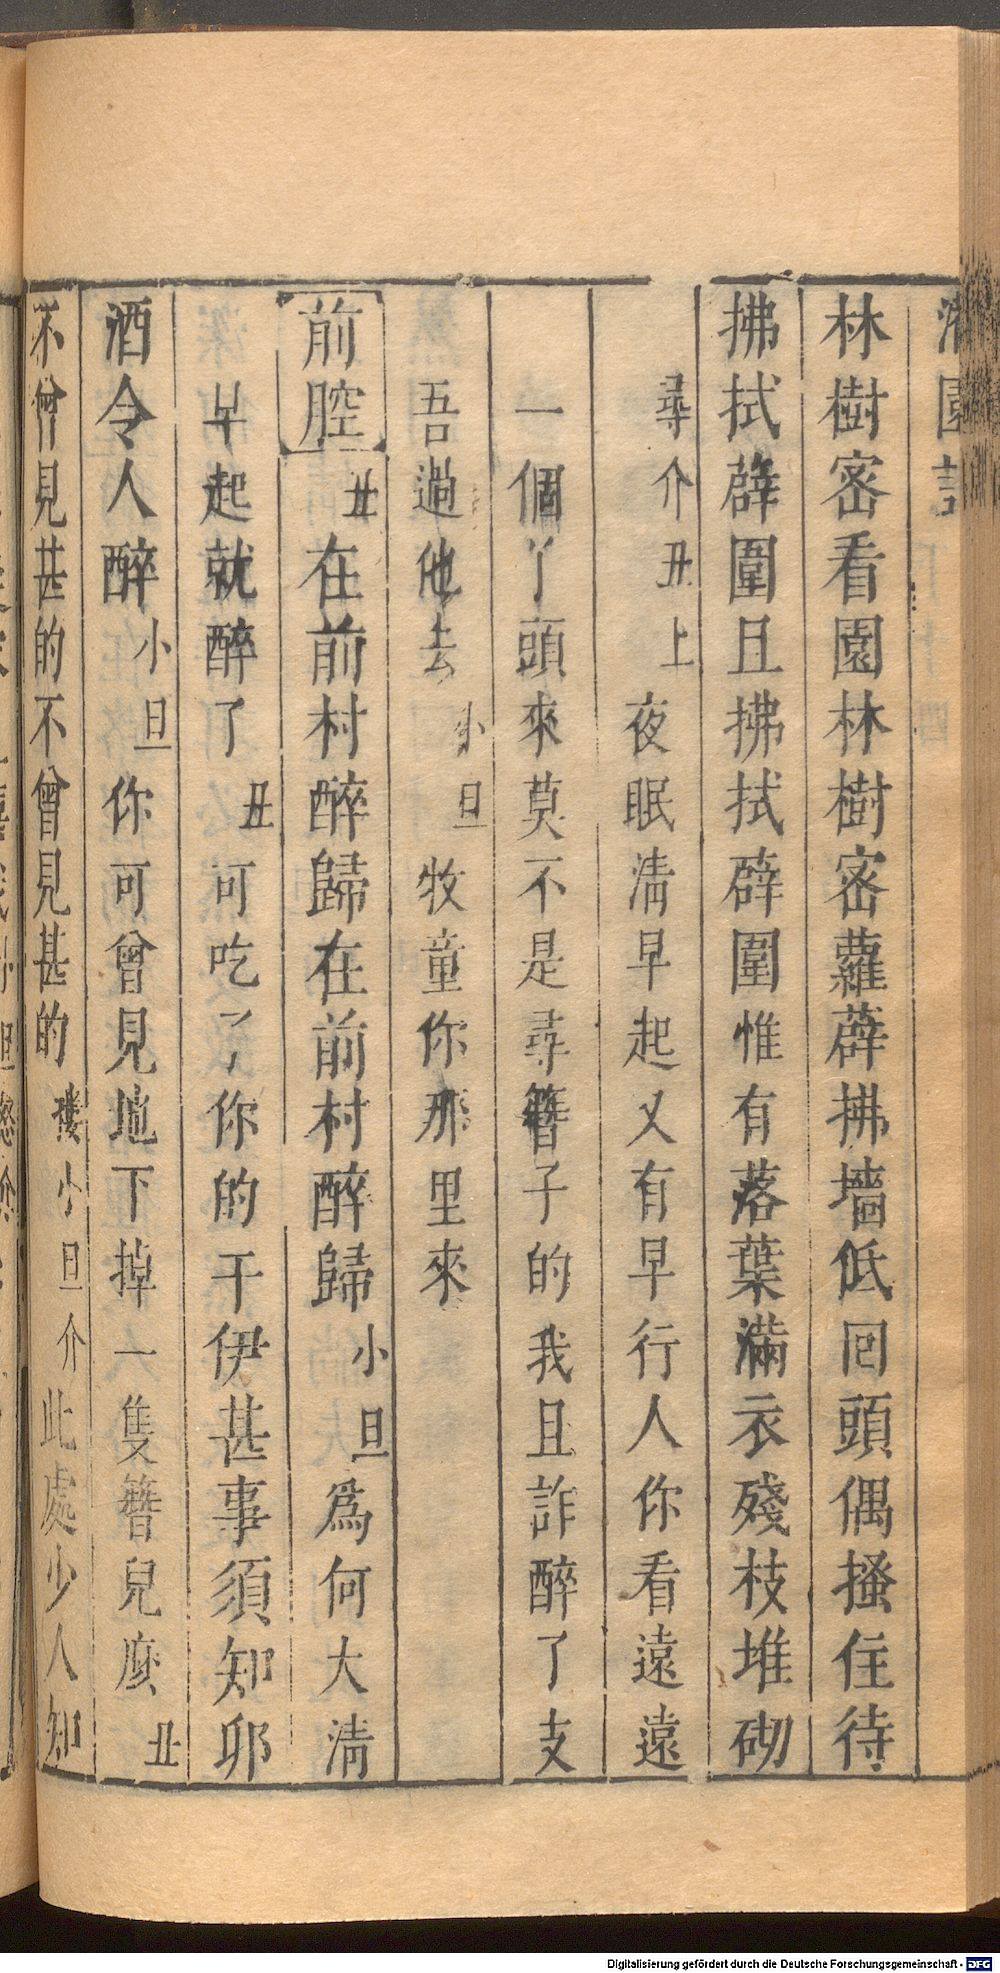 園記
林樹密看園林樹密蘿薜拂墻低回頭偶搔住待
拂拭薜圍且拂拭薜圍惟有落葉滿衣殘枝堆砌
尋介丑上夜眠清早起又有早行人你看遠遠
一個丫頭來莫不是尋簪子的我且詐醉了支
吾過他去小旦牧童你那里來
前腔丑在前村醉歸在前村醉歸小旦爲何大清
早起就醉了丑可吃了你的干伊甚事須知卯
酒令人醉小旦你可曾見地下掉一隻簪兒麼丑
不曾見甚的不曾見甚的摟小旦介此處少人知
Digitalisierung gefördert durch die Deutsche Forschungsgemeinschaft - DFG